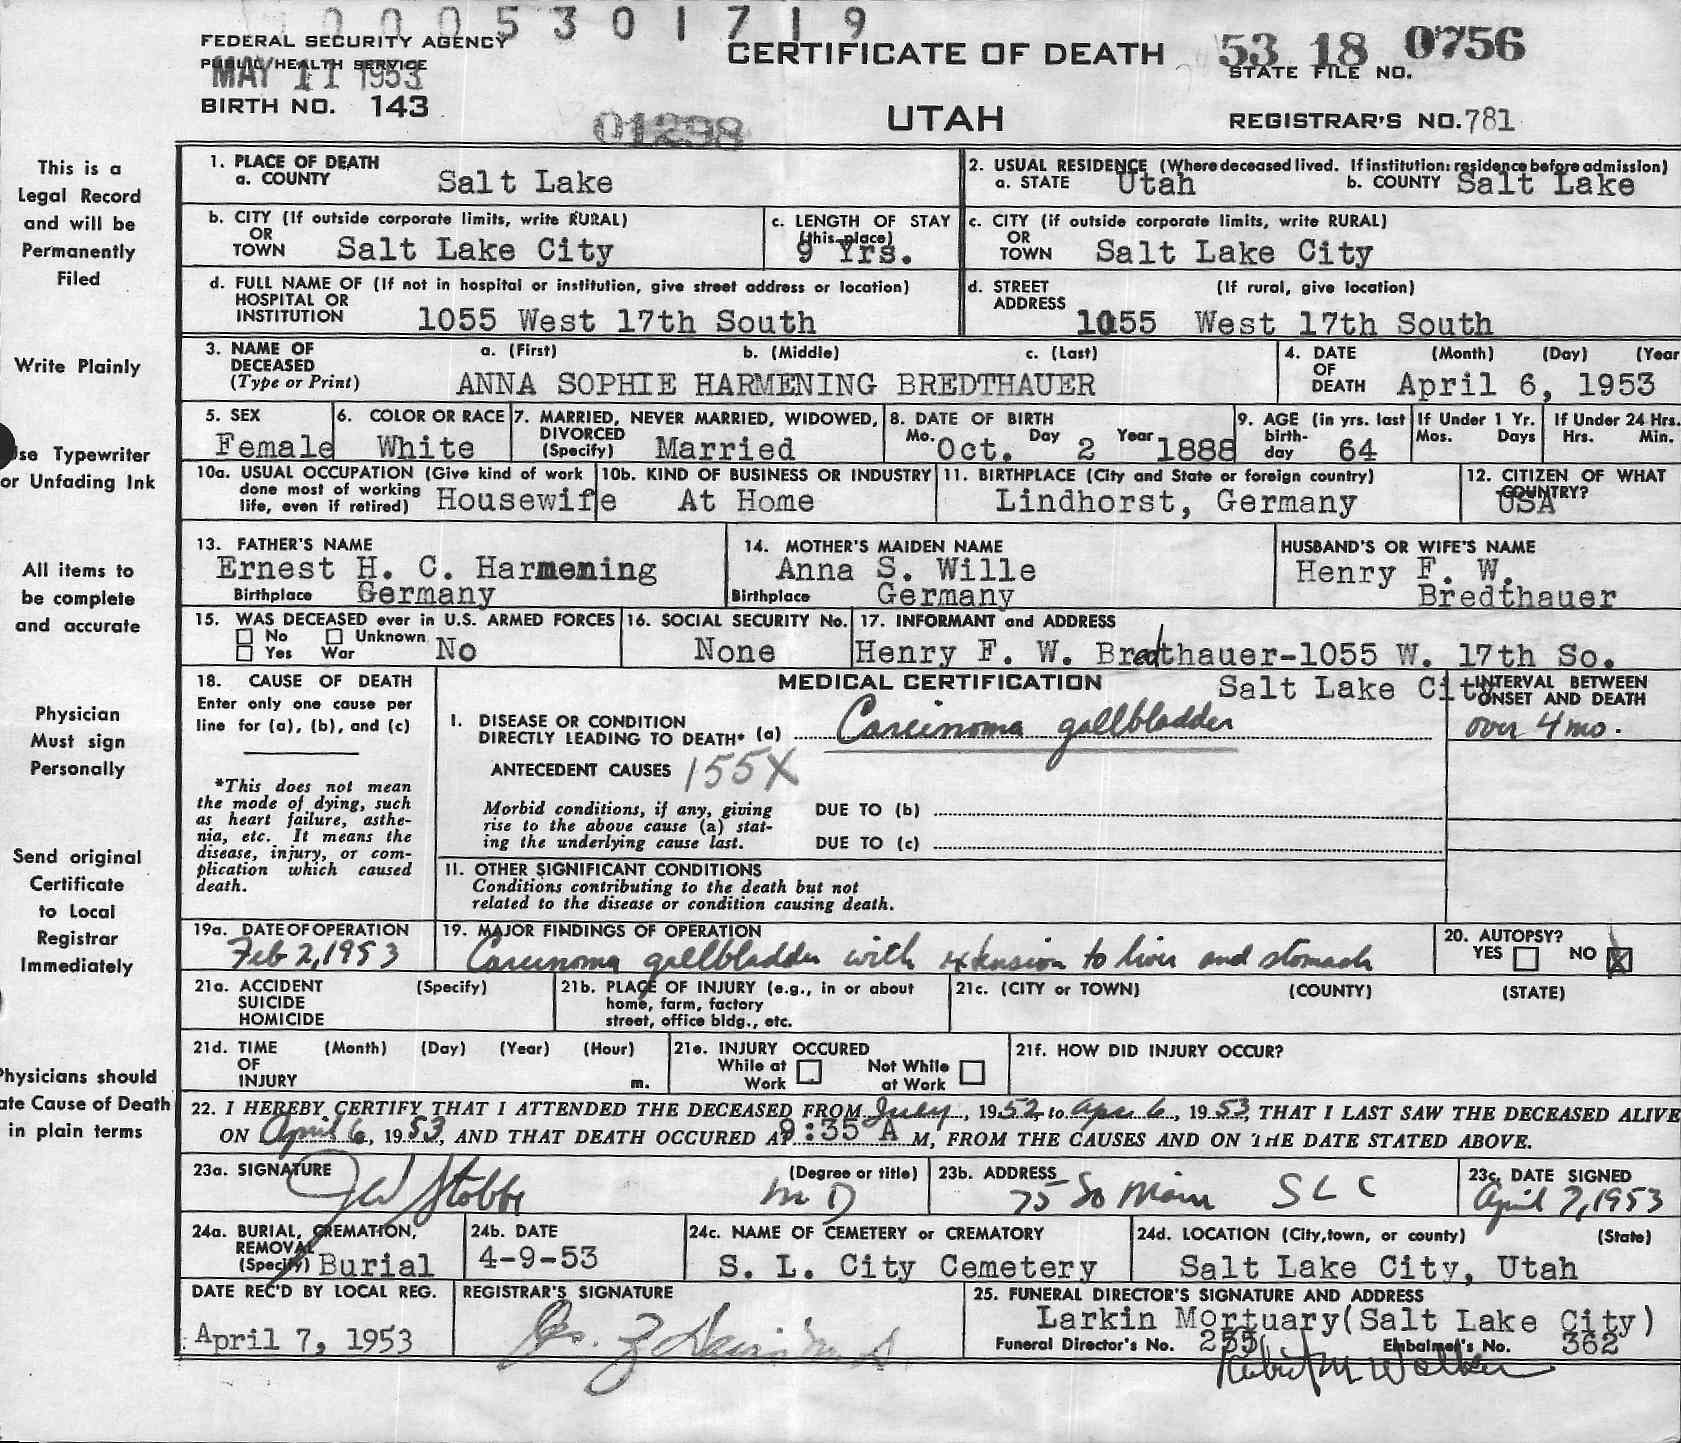 10005301719
FEDERAL SECURITY AGENCY
PUBLIC HEALTH SERVICE
MAY 11 1953
CERTIFICATE OF DEATH
53 18 0756
STATE FILE NO.
BIRTH NO. 143
01298
UTAH
REGISTRAR'S NO. 781
This is a
Legal Record
and will be
Permanently
Filed
Write Plainly
Use Typewriter
or Unfading Ink
All items to
be complete
and accurate
Physician
Must sign
Personally
Send original
Certificate
to Local
Registrar
Immediately
Physicians should
ate Cause of Death
in plain terms
1. PLACE OF DEATH
a. COUNTY Salt Lake
2. USUAL RESIDENCE (Where deceased lived. If institution: residence before admission)
a. STATE Utah b. COUNTY Salt Lake
b. CITY (If outside corporate limits, write RURAL)
OR
TOWN Salt Lake City
c. LENGTH OF STAY
(this place)
9 Yrs.
c. CITY (if outside corporate limits, write RURAL)
OR
TOWN Salt Lake City
d. FULL NAME OF (If not in hospital or institution, give street address or location)
HOSPITAL OR
INSTITUTION 1055 West 17th South
d. STREET (If rural, give location)
ADDRESS 1055 West 17th South
3. NAME OF a. (First) b. (Middle) c. (Last)
DECEASED
(Type or Print) ANNA SOPHIE HARMENING BREDTHAUER
4. DATE (Month) (Day) (Year
OF
DEATH April 6, 1953
5. SEX
Female
6. COLOR OR RACE
White
7. MARRIED, NEVER MARRIED, WIDOWED,
DIVORCED
(Specify) Married
8. DATE OF BIRTH
Mo. Oct. Day 2 Year 1888
9. AGE (in yrs. last
birth-
day 64
If Under 1 Yr.
Mos. Days
If Under 24 Hrs.
Hrs. Min.
10a. USUAL OCCUPATION (Give kind of work
done most of working
life, even if retired) Housewife
10b. KIND OF BUSINESS OR INDUSTRY
At Home
11. BIRTHPLACE (City and State or foreign country)
Lindhorst, Germany
12. CITIZEN OF WHAT
COUNTRY?
USA
13. FATHER'S NAME
Ernest H. C. Harmening
Birthplace Germany
14. MOTHER'S MAIDEN NAME
Anna S. Wille
Birthplace Germany
HUSBAND'S OR WIFE'S NAME
Henry F. W.
Bredthauer
15. WAS DECEASED ever in U.S. ARMED FORCES
No Unknown
Yes War No
16. SOCIAL SECURITY No.
None
17. INFORMANT and ADDRESS
Henry F. W. Bredthauer-1055 W. 17th So.
Salt Lake City
18. CAUSE OF DEATH
Enter only one cause per
line for (a), (b), and (c)
*This does not mean
the mode of dying, such
as heart failure, asthe-
nia, etc. It means the
disease, injury, or com-
plication which caused
death.
MEDICAL CERTIFICATION
INTERVAL BETWEEN
ONSET AND DEATH
I. DISEASE OR CONDITION
DIRECTLY LEADING TO DEATH* (a) Carcinoma gallbladder
over 4 mo.
ANTECEDENT CAUSES 155X
Morbid conditions, if any, giving
rise to the above cause (a) stat-
ing the underlying cause last.
DUE TO (b)
DUE TO (c)
11. OTHER SIGNIFICANT CONDITIONS
Conditions contributing to the death but not
related to the disease or condition causing death.
19a. DATE OF OPERATION
Feb 2, 1953
19. MAJOR FINDINGS OF OPERATION
Carcinoma gallbladder with extension to liver and stomach
20. AUTOPSY?
YES NO X
21a. ACCIDENT (Specify)
SUICIDE
HOMICIDE
21b. PLACE OF INJURY (e.g., in or about
home, farm, factory
street, office bldg., etc.
21c. (CITY or TOWN) (COUNTY) (STATE)
21d. TIME (Month) (Day) (Year) (Hour)
OF
INJURY m.
21e. INJURY OCCURED
While at Not While
Work at Work
21f. HOW DID INJURY OCCUR?
22. I HEREBY CERTIFY THAT I ATTENDED THE DECEASED FROM July, 1952 to Apr 6, 1953, THAT I LAST SAW THE DECEASED ALIVE
ON April 6, 1953, AND THAT DEATH OCCURED AT 9:35 A M, FROM THE CAUSES AND ON THE DATE STATED ABOVE.
23a. SIGNATURE (Degree or title)
Stobbe MD
23b. ADDRESS
75 So Main SLC
23c. DATE SIGNED
April 7, 1953
24a. BURIAL, CREMATION,
REMOVAL
(Specify) Burial
24b. DATE
4-9-53
24c. NAME OF CEMETERY or CREMATORY
S. L. City Cemetery
24d. LOCATION (City, town, or county) (State)
Salt Lake City, Utah
DATE REC'D BY LOCAL REG.
April 7, 1953
REGISTRAR'S SIGNATURE
25. FUNERAL DIRECTOR'S SIGNATURE AND ADDRESS
Larkin Mortuary(Salt Lake City)
Funeral Director's No. 255 Embalmer's No. 362